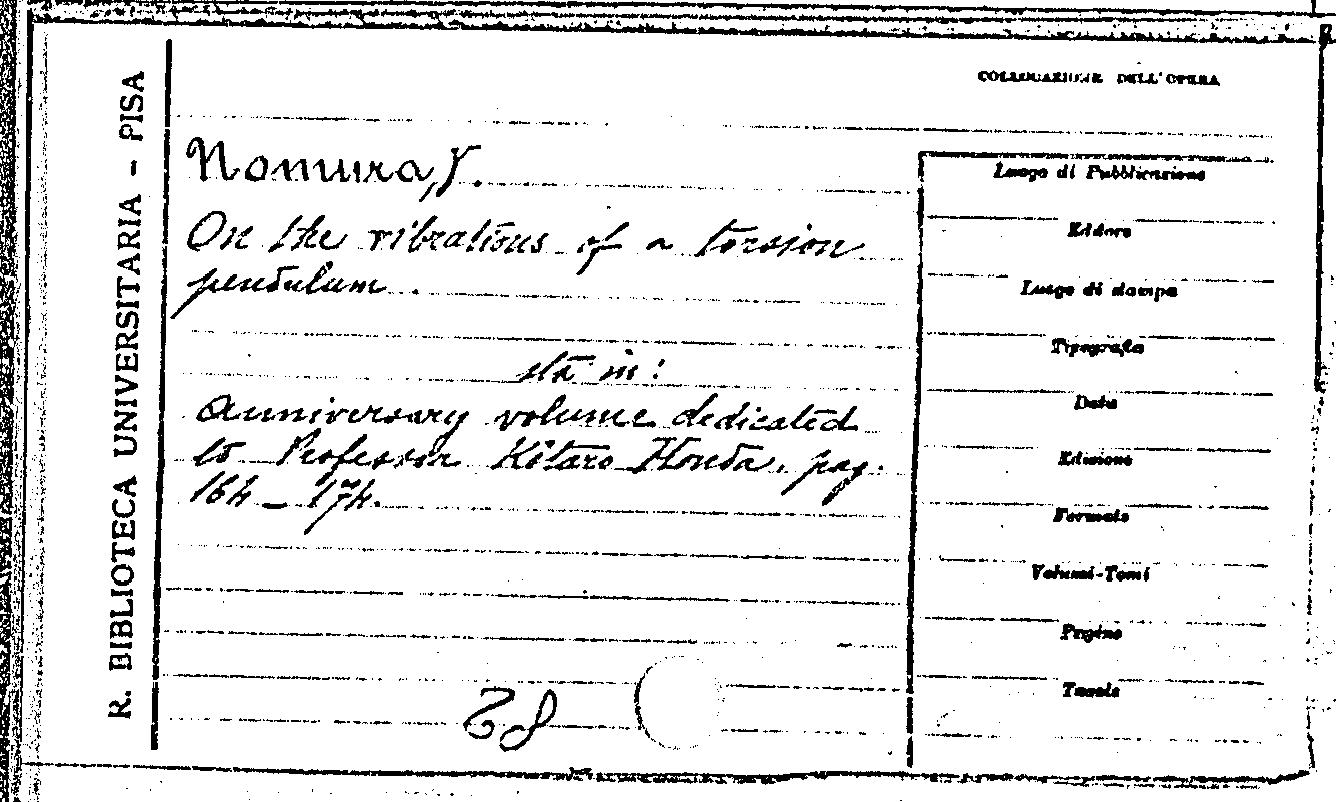 R. BIBLIOTECA UNIVERSITARIA - PISA
COLLOCAZIONE DELL'OPERA
Nomura, Y.
On the vibrations of a torsion
pendulum.
sta in:
Anniversary volume dedicated
to Professor Kôtaro Honda. pag.
164 - 174.
28
Luogo di Pubblicazione
Editore
Luogo di stampa
Tipografia
Data
Edizione
Formato
Volumi-Tomi
Pagine
Tavole